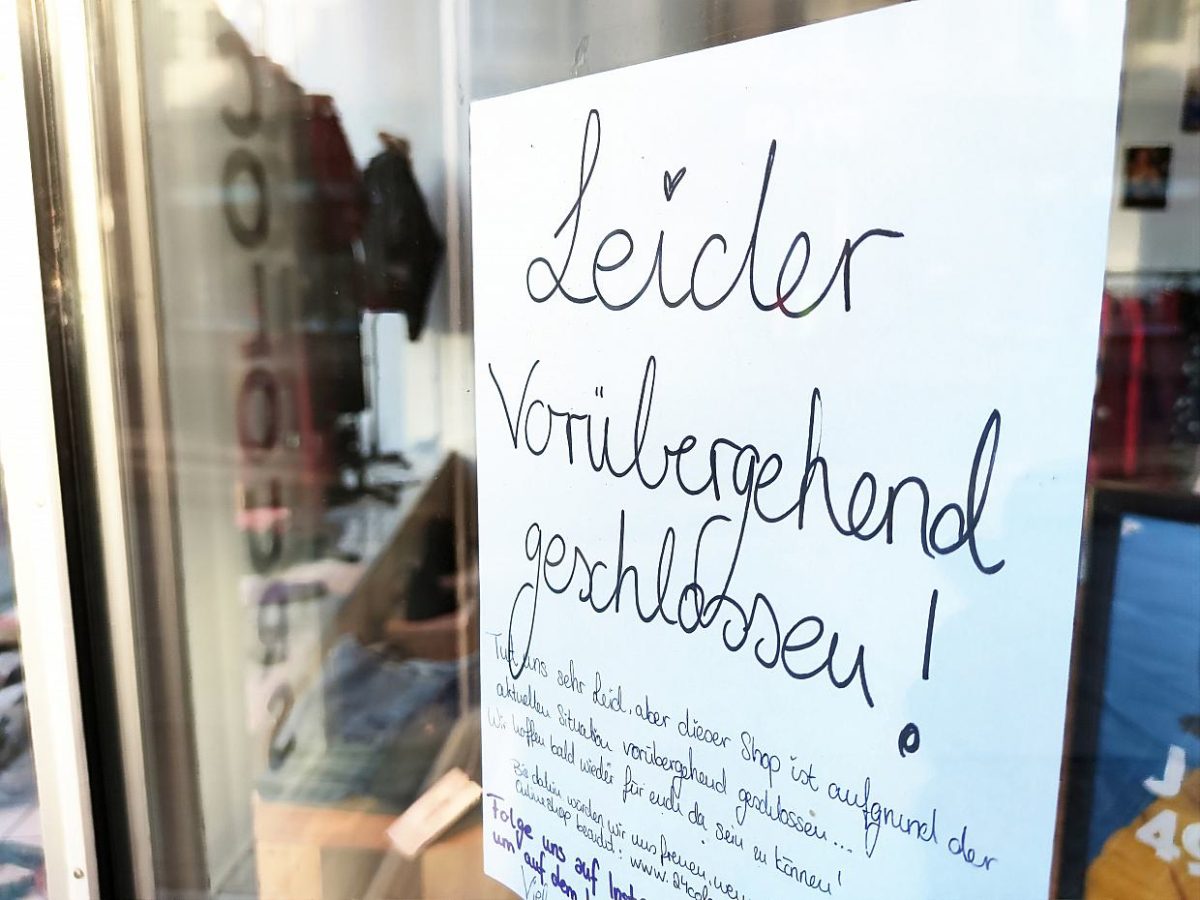 Leider
Vorübergehend
geschlossen!
Tut uns sehr Leid, aber dieser Shop ist aufgrund der
aktuellen Situation vorübergehend geschlossen...
Wir hoffen bald wieder für euch da sein zu können!
Bis dahin würden wir uns freuen, wenn
Onlineshop besucht: www.24colo
Folge uns auf Inst
um auf dem
J
49